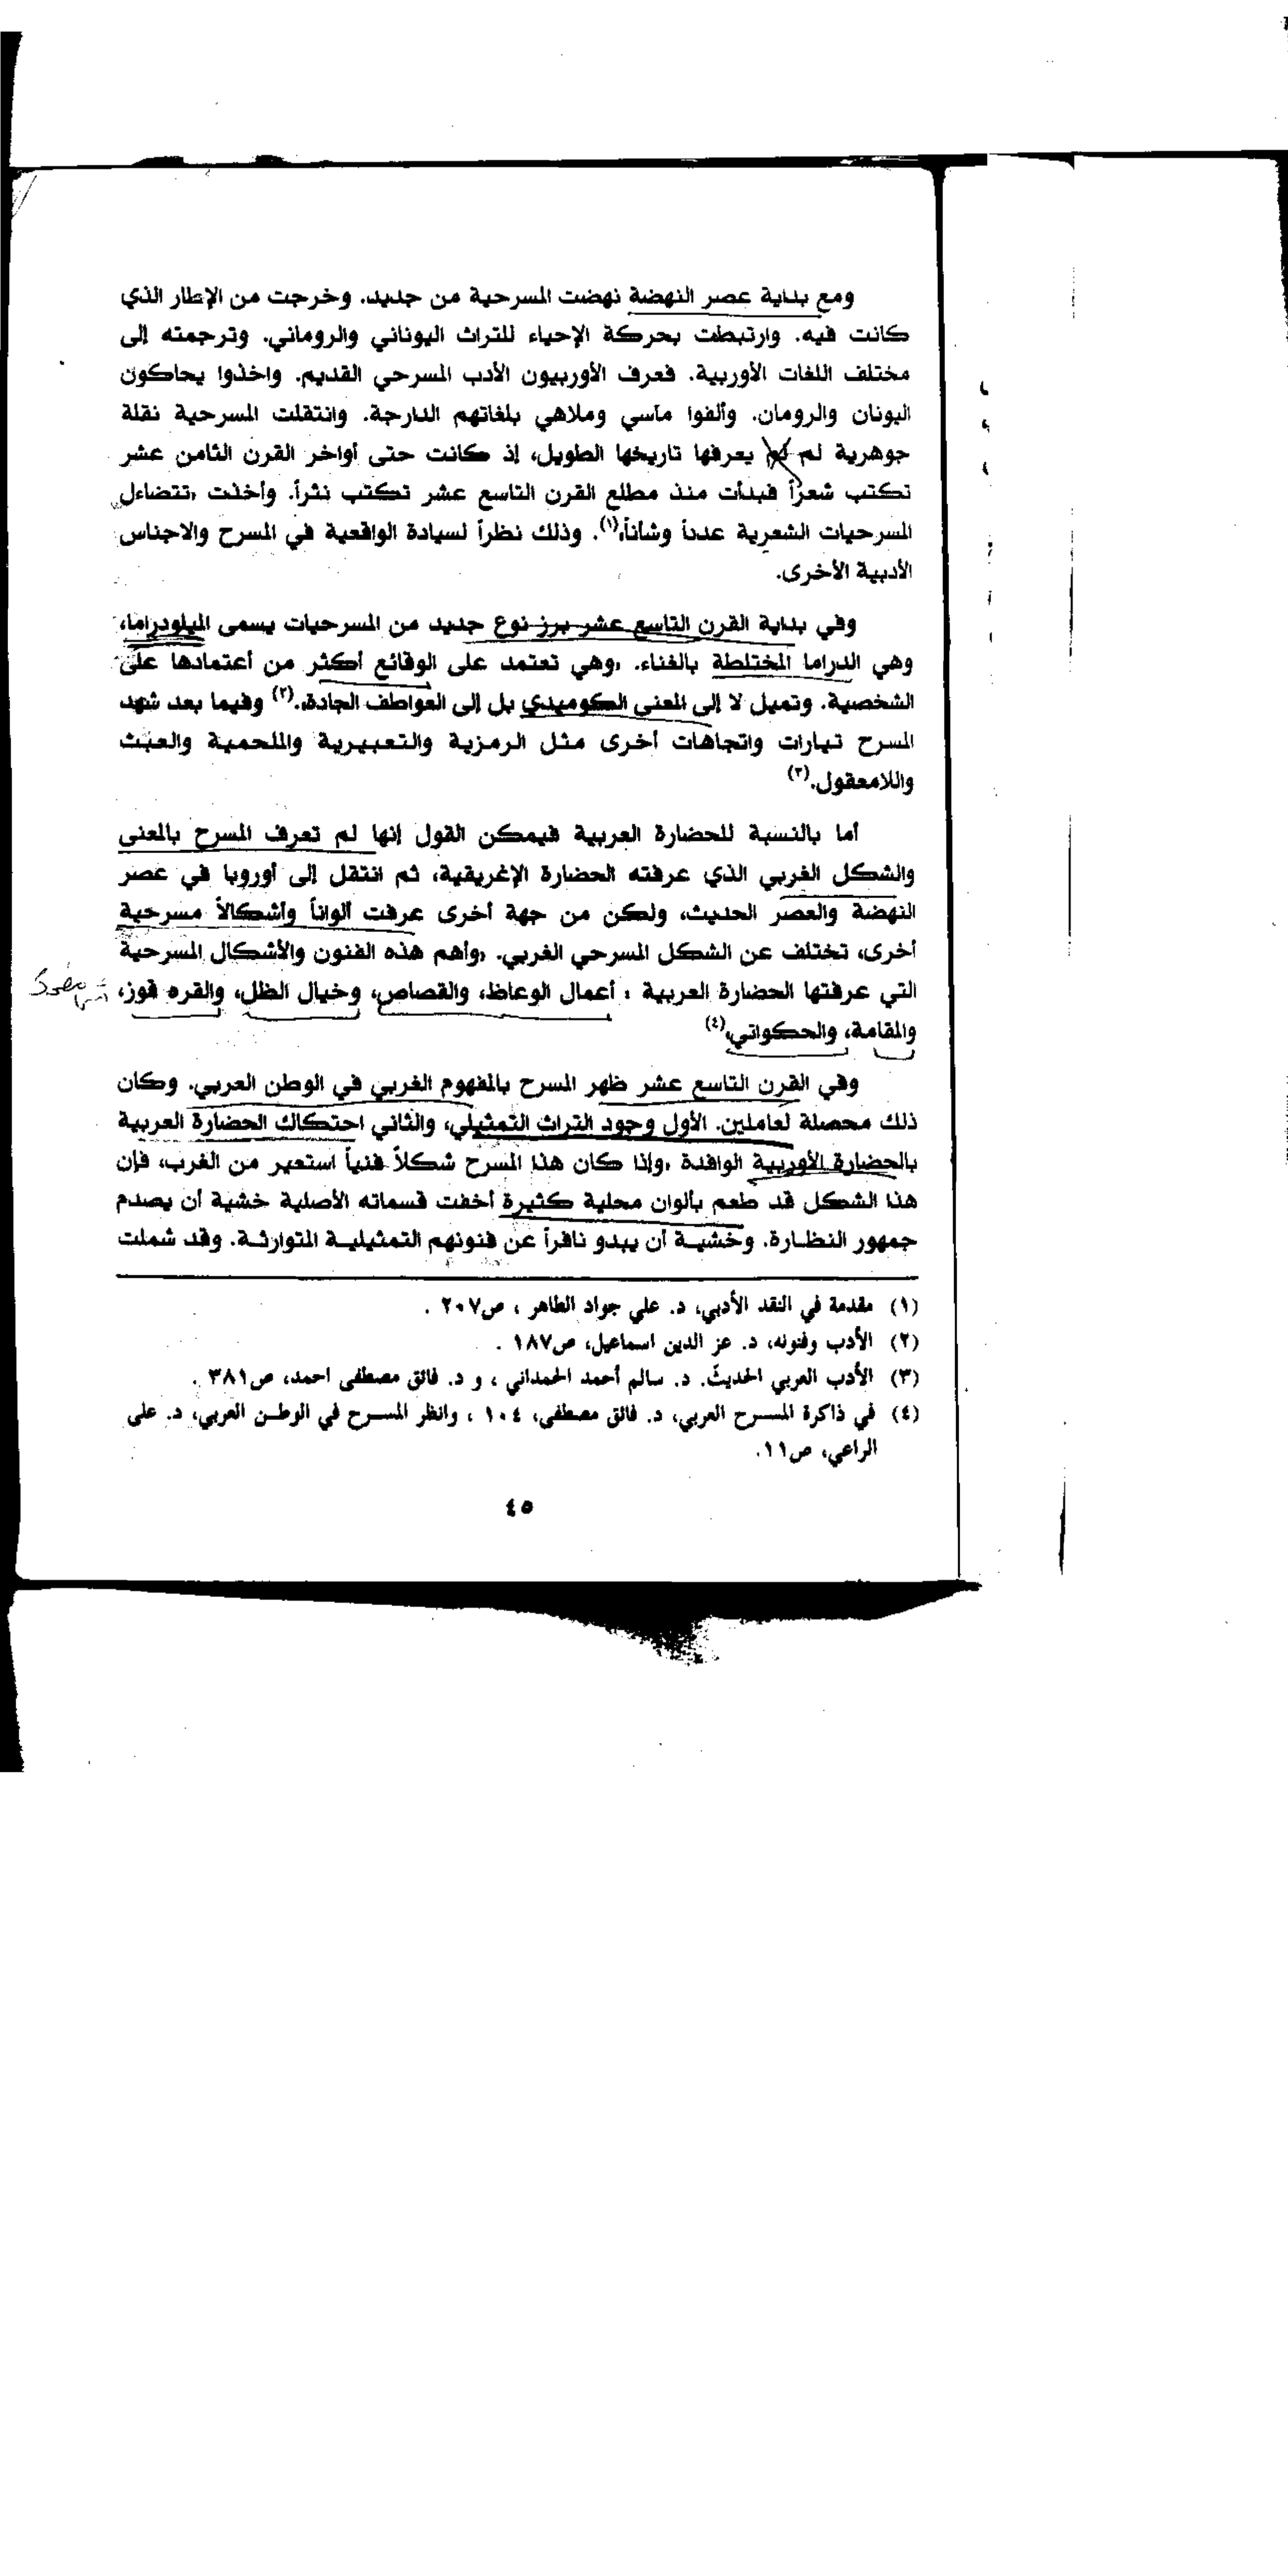 ومع بداية عصر النهضة نهضت المسرحية من جديد. وخرجت من الإطار الذي
كانت فيه. وارتبطت بحركة الإحياء للتراث اليوناني والروماني. وترجمته إلى
مختلف اللغات الأوربية. فعرف الأوربيون الأدب المسرحي القديم. واخذوا يحاكون
اليونان والرومان. وألفوا مآسي وملاهي بلغاتهم الدارجة. وانتقلت المسرحية نقلة
جوهرية لم لم يعرفها تاريخها الطويل، إذ كانت حتى أواخر القرن الثامن عشر
تكتب شعراً فبدأت منذ مطلع القرن التاسع عشر تكتب نثراً. وأخذت «تتضاءل
المسرحيات الشعرية عدداً وشأناً»(١). وذلك نظراً لسيادة الواقعية في المسرح والاجناس
الأدبية الأخرى.
وفي بداية القرن التاسع عشر برز نوع جديد من المسرحيات يسمى الميلودراما،
وهي الدراما المختلطة بالغناء. «وهي تعتمد على الوقائع أكثر من أعتمادها على
الشخصية. وتميل لا إلى المعنى الكوميدي بل إلى العواطف الجادة».(٢) وفيما بعد شهد
المسرح تيارات واتجاهات أخرى مثل الرمزية والتعبيرية والملحمية والعبث
واللامعقول.(٣)
أما بالنسبة للحضارة العربية فيمكن القول إنها لم تعرف المسرح بالمعنى
والشكل الغربي الذي عرفته الحضارة الإغريقية، ثم انتقل إلى أوروبا في عصر
النهضة والعصر الحديث، ولكن من جهة أخرى عرفت ألواناً وأشكالاً مسرحية
أخرى، تختلف عن الشكل المسرحي الغربي. «وأهم هذه الفنون والأشكال المسرحية
التي عرفتها الحضارة العربية : أعمال الوعاظ، والقصاص، وخيال الظل، والقره قوز،
والمقامة، والحكواتي»(٤)
وفي القرن التاسع عشر ظهر المسرح بالمفهوم الغربي في الوطن العربي. وكان
ذلك محصلة لعاملين. الأول وجود التراث التمثيلي، والثاني احتكاك الحضارة العربية
بالحضارة الأوربية الوافدة «وإذا كان هذا المسرح شكلاً فنياً استعير من الغرب، فإن
هذا الشكل قد طعم بألوان محلية كثيرة أخفت قسماته الأصلية خشية أن يصدم
جمهور النظارة. وخشية أن يبدو نافراً عن فنونهم التمثيلية المتوارثة. وقد شملت
(١) مقدمة في النقد الأدبي، د. علي جواد الطاهر ، ص٢٠٧ .
(٢) الأدب وفنونه، د. عز الدين اسماعيل، ص١٨٧ .
(٣) الأدب العربي الحديث. د. سالم أحمد الحمداني ، و د. فائق مصطفى احمد، ص٣٨١ .
(٤) في ذاكرة المسرح العربي، د. فائق مصطفى، ١٠٤ ، وانظر المسرح في الوطن العربي، د. على
الراعي، ص١١.
٤٥